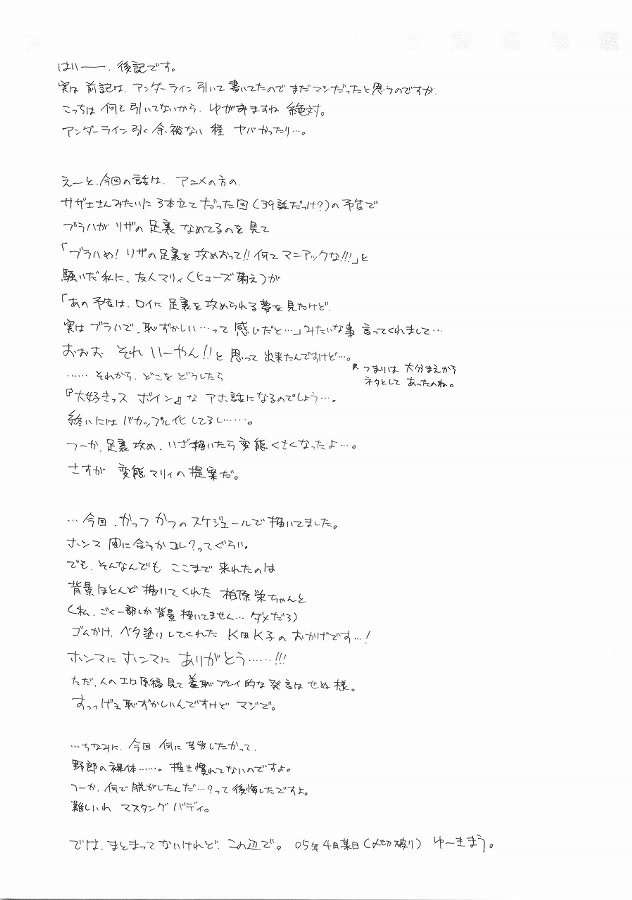 はいーー、後記です。
実は前記は、アンダーライン引いて書いてたのでまだマシだったと思うのですが、
こっちは何も引いてないから、ゆがみますね絶対。
アンダーライン引く余裕ない程ヤバかったり…。
えーと、今回の話は、アニメの方の、
サザエさんみたいに3本立てだった回(39話だっけ?)の予告で
ブラハがリザの足裏なめてるのを見て
「ブラハめ!リザの足裏を攻めおって!!何てマニアックな!!!」と
騒いだ私に、友人マリィ(ヒューズ萌え)が
「あの予告は、ロイに足裏を攻められる夢を見たけど、
実はブラハで、恥ずかしい…って感じだと…」みたいな事言ってくれまして…
おぉぉ それいーやん!!と思って出来たんですけど…。
つまりは大分まえから
ネタとしてあったのね。
……それから、どこをどうしたら
『大好きっス ボイン』なアホ話になるのでしょう…。
終いにはバカップル化してるし……。
つーか、足裏攻め、いざ描いたら変態くさくなったよ…。
さすが変態マリィの提案だ。
…今回、かっつかつのスケジュールで描いてました。
ホンマ間に合うかコレ?ってぐらい。
でも、そんなんでもここまで来れたのは
背景ほとんど描いてくれた柏原栄ちゃんと
(私、ごく一部しか背景描いてません…ダメだろ)
ゴムかけ、ベタ塗りしてくれたK田K子のおかげです…!
ホンマにホンマにありがとう……!!!
ただ、人のエロ原稿見て羞恥プレイ的な発言はせぬ様。
すっっげぇ恥ずかしいんですけどマジで。
…ちなみに、今回何に苦労したかって、
野郎の裸体……。描き慣れてないのですよ。
つーか、何で脱がしたんだ…?って後悔したですよ。
難しいわ マスタングバディ。
では、まとまってないけれど、この辺で。 05年4月某日(〆切破り) ゆーきまう。